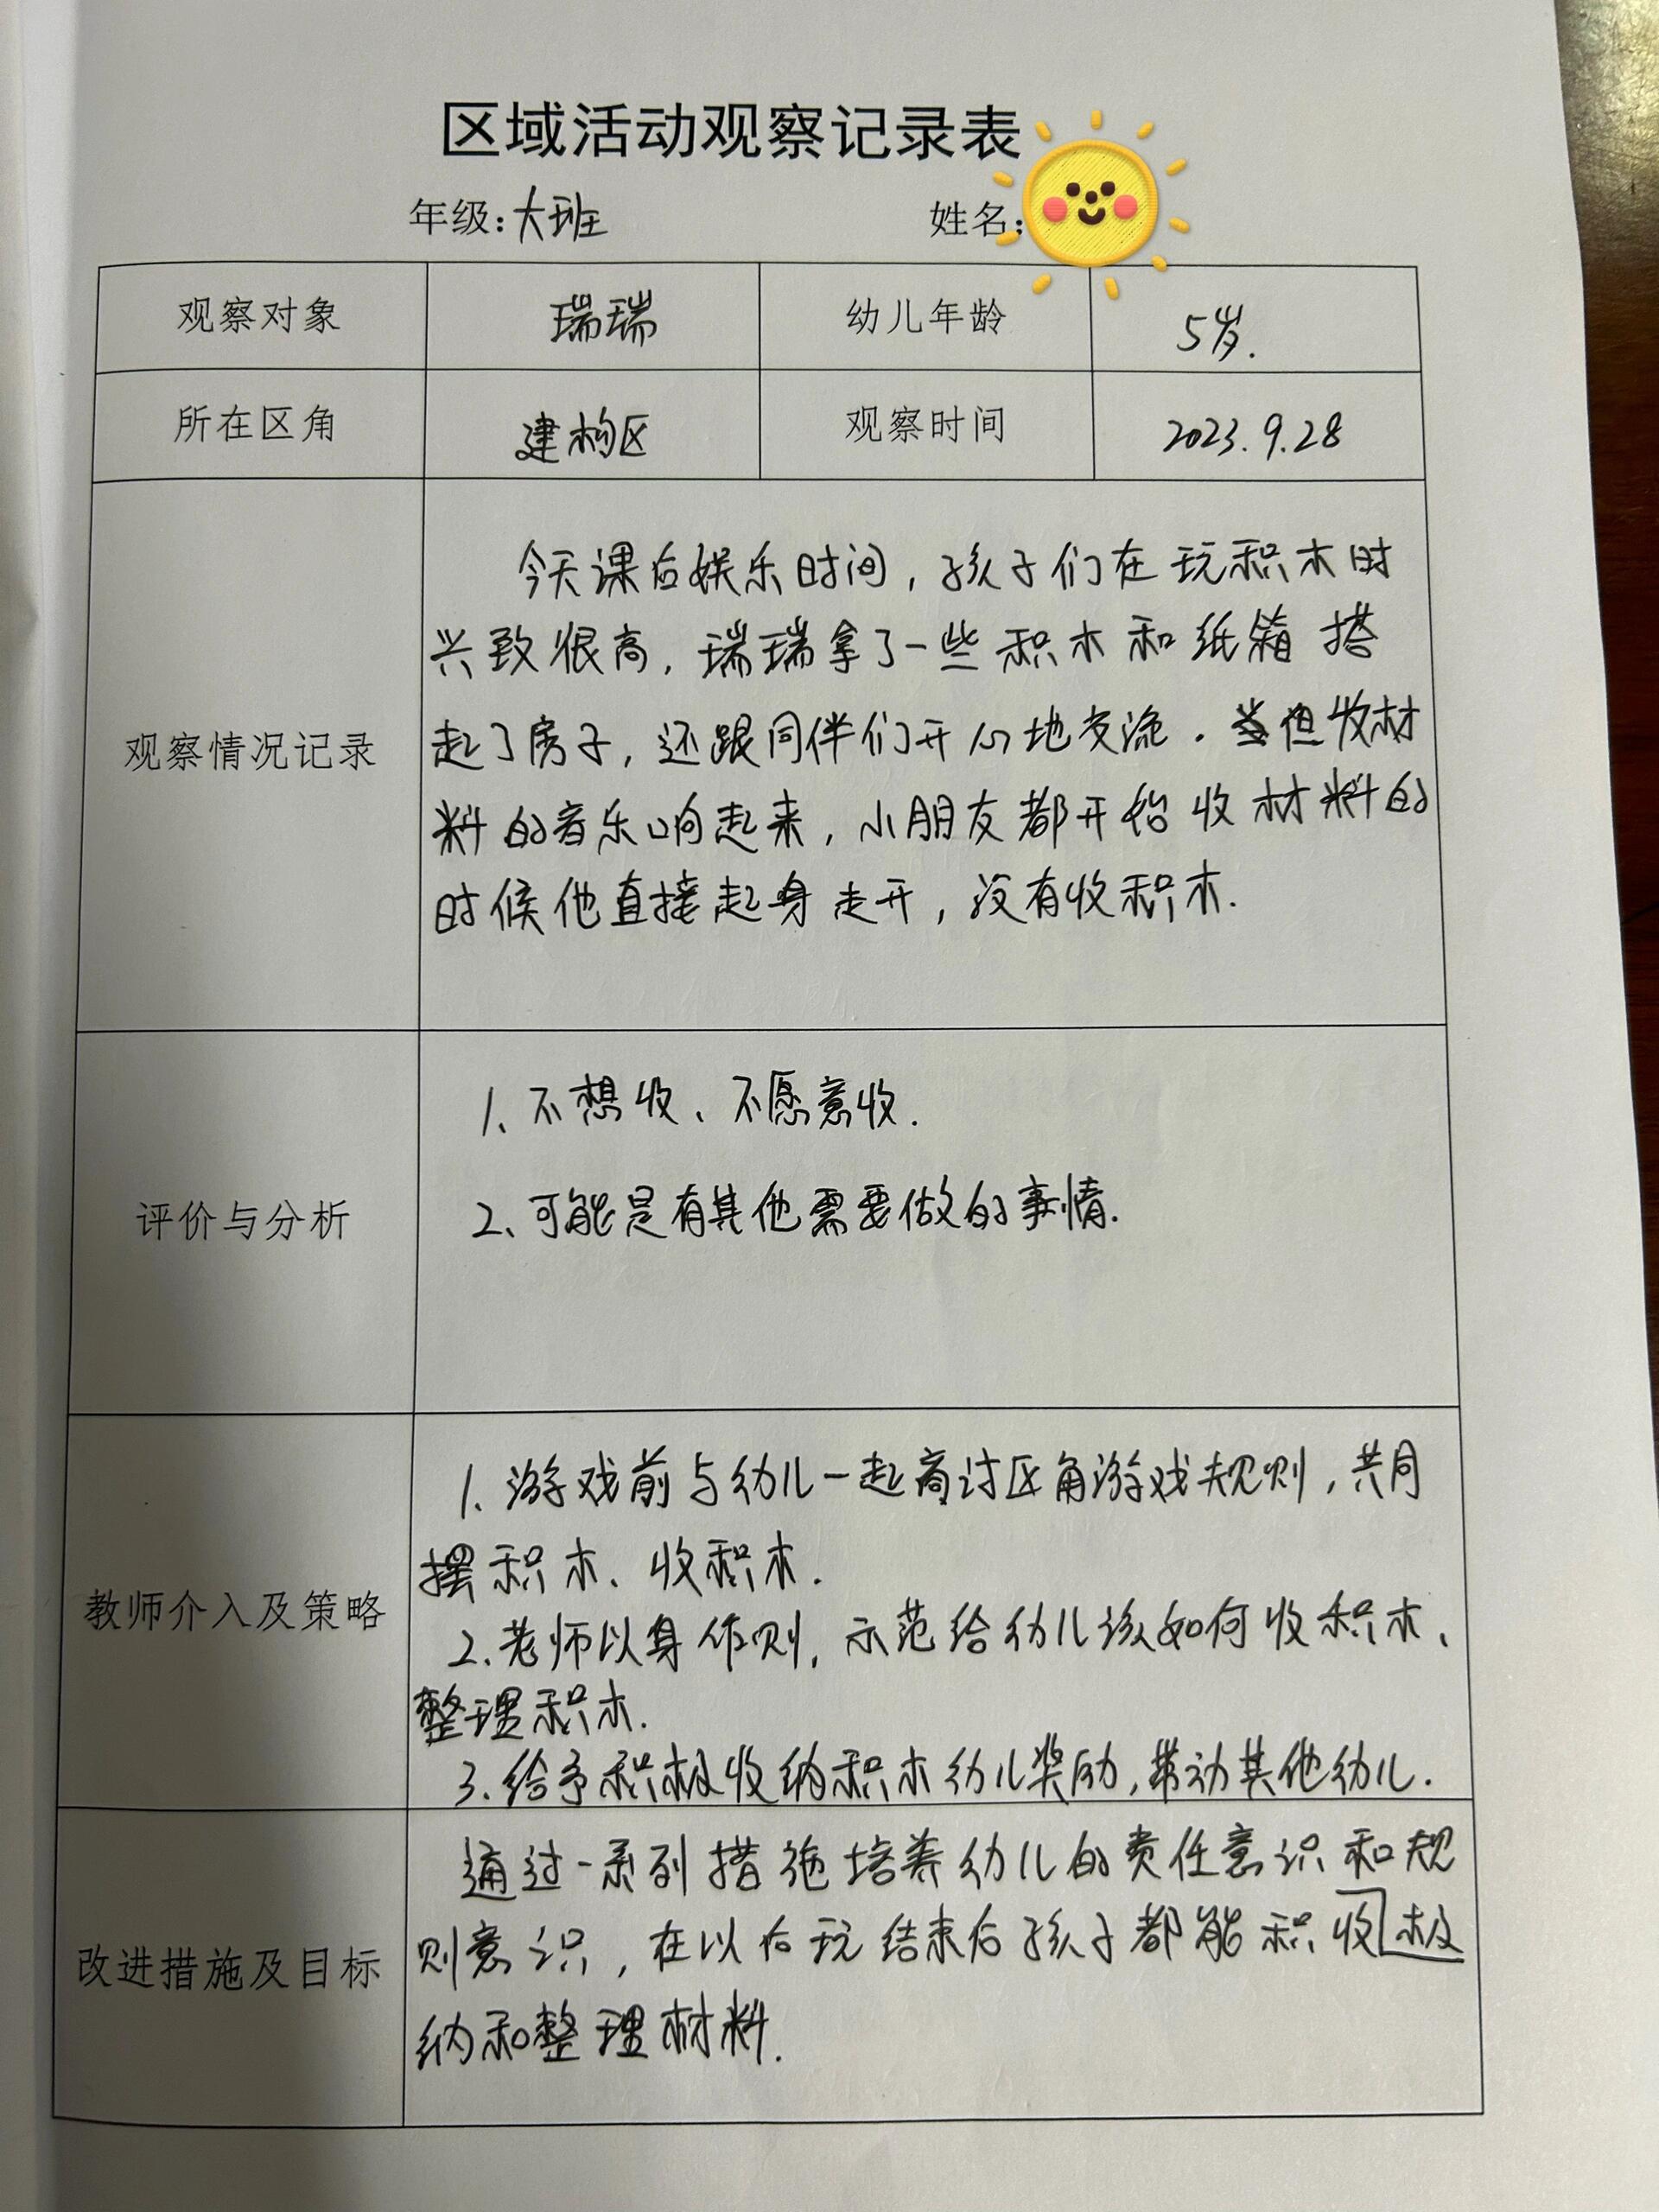 区域活动观察记录表
年级:大班 姓名:
观察对象 瑞瑞 幼儿年龄 5岁.
所在区角 建构区 观察时间 2023.9.28
观察情况记录
今天课后娱乐时间,孩子们在玩积木时
兴致很高,瑞瑞拿了一些积木和纸箱搭
起了房子,还跟同伴们开心地交流.但收材
料的音乐响起来,小朋友都开始收材料的
时候他直接起身走开,没有收积木.
评价与分析
1、不想收、不愿意收.
2、可能是有其他需要做的事情.
教师介入及策略
1、游戏前与幼儿一起商讨区角游戏规则,共同
摆积木、收积木.
2、老师以身作则,示范给幼儿该如何收积木、
整理积木.
3.给予积极收纳积木幼儿奖励,带动其他幼儿.
改进措施及目标
通过一系列措施培养幼儿的责任意识和规
则意识,在以后玩结束后孩子都能积收极
纳和整理材料.